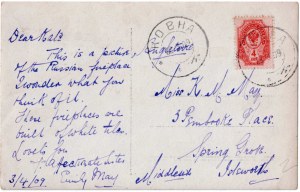 Dear Kate
This is a picture
of the Russian fireplace
I wonder what you
think of it.
fireplaces are
built of white tile.
Love
affectionate
3/4/09. Emily May
РОВНА
Angleterre
Miss K. M. May
3 Pembroke Place
Spring Grove
Isleworth
Middlesex